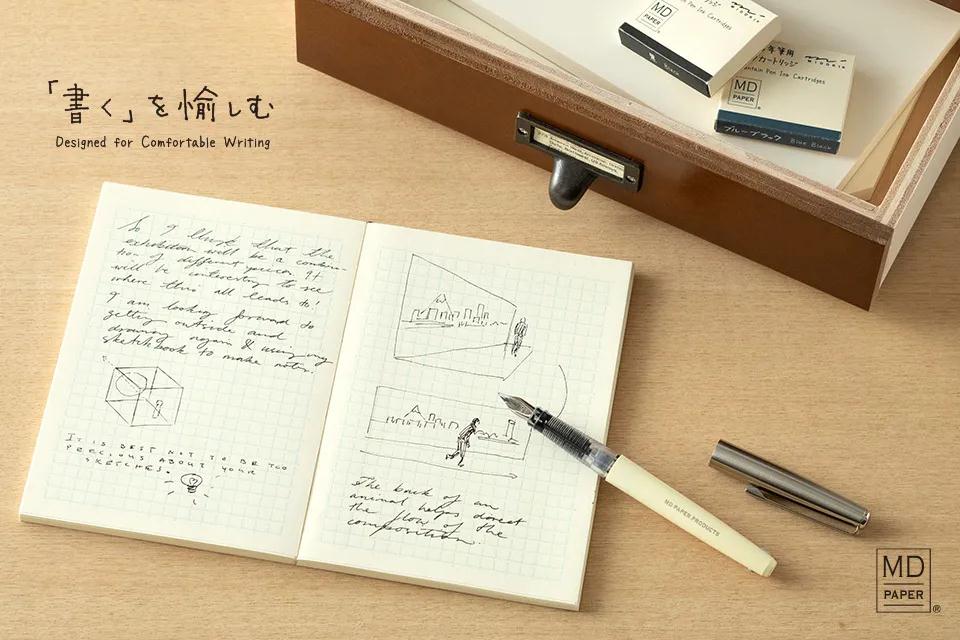 「書く」を愉しむ
Designed for Comfortable Writing
MD
PAPER
Pen Ink Cartridges
Black
ountain Pen Ink Cartridges
MD
PAPER
ブルーブラック Blue Black
So I think that the
exhibition will be a combin-
tion of different pieces. It
will be interesting to see
where this all leads to!
I am looking forward to
getting outside and
drawing again & using my
sketchbook to make notes.
IT IS BEST NOT TO BE TOO
PRECIOUS ABOUT YOUR
SKETCHES.
The back of an
animal helps direct
the flow of the
composition.
MD PAPER PRODUCTS
MD
PAPER
®